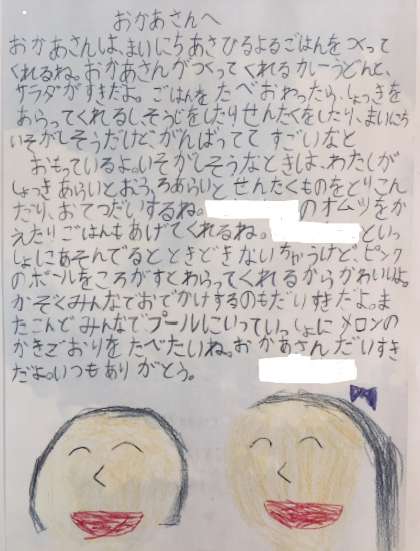 おかあさんへ
おかあさんは、まいにちあさひるよるごはんをつくって
くれるね。おかあさんがつくってくれるカレーうどんと、
サラダがすきだよ。ごはんをたべおわったら、しょっきを
あらってくれるしそうじをしたりせんたくをしたり、まいにち
いそがしそうだけど、がんばっててすごいなと
おもっているよ。いそがしそうなときは、わたしが
しょっきあらいとおふろあらいとせんたくものをとりこん
だり、おてつだいするね。のオムツをか
えたりごはんもあげてくれるね。といっ
しょにあそんでるとときどきないちゃうけど、ピンク
のボールをころがすとわらってくれるからかわいいよ。
かぞくみんなでおでかけするのもだいすきだよ。ま
たこんどみんなでプールにいっていっしょにメロンの
かきごおりをたべたいね。おかあさんだいすき
だよ。いつもありがとう。